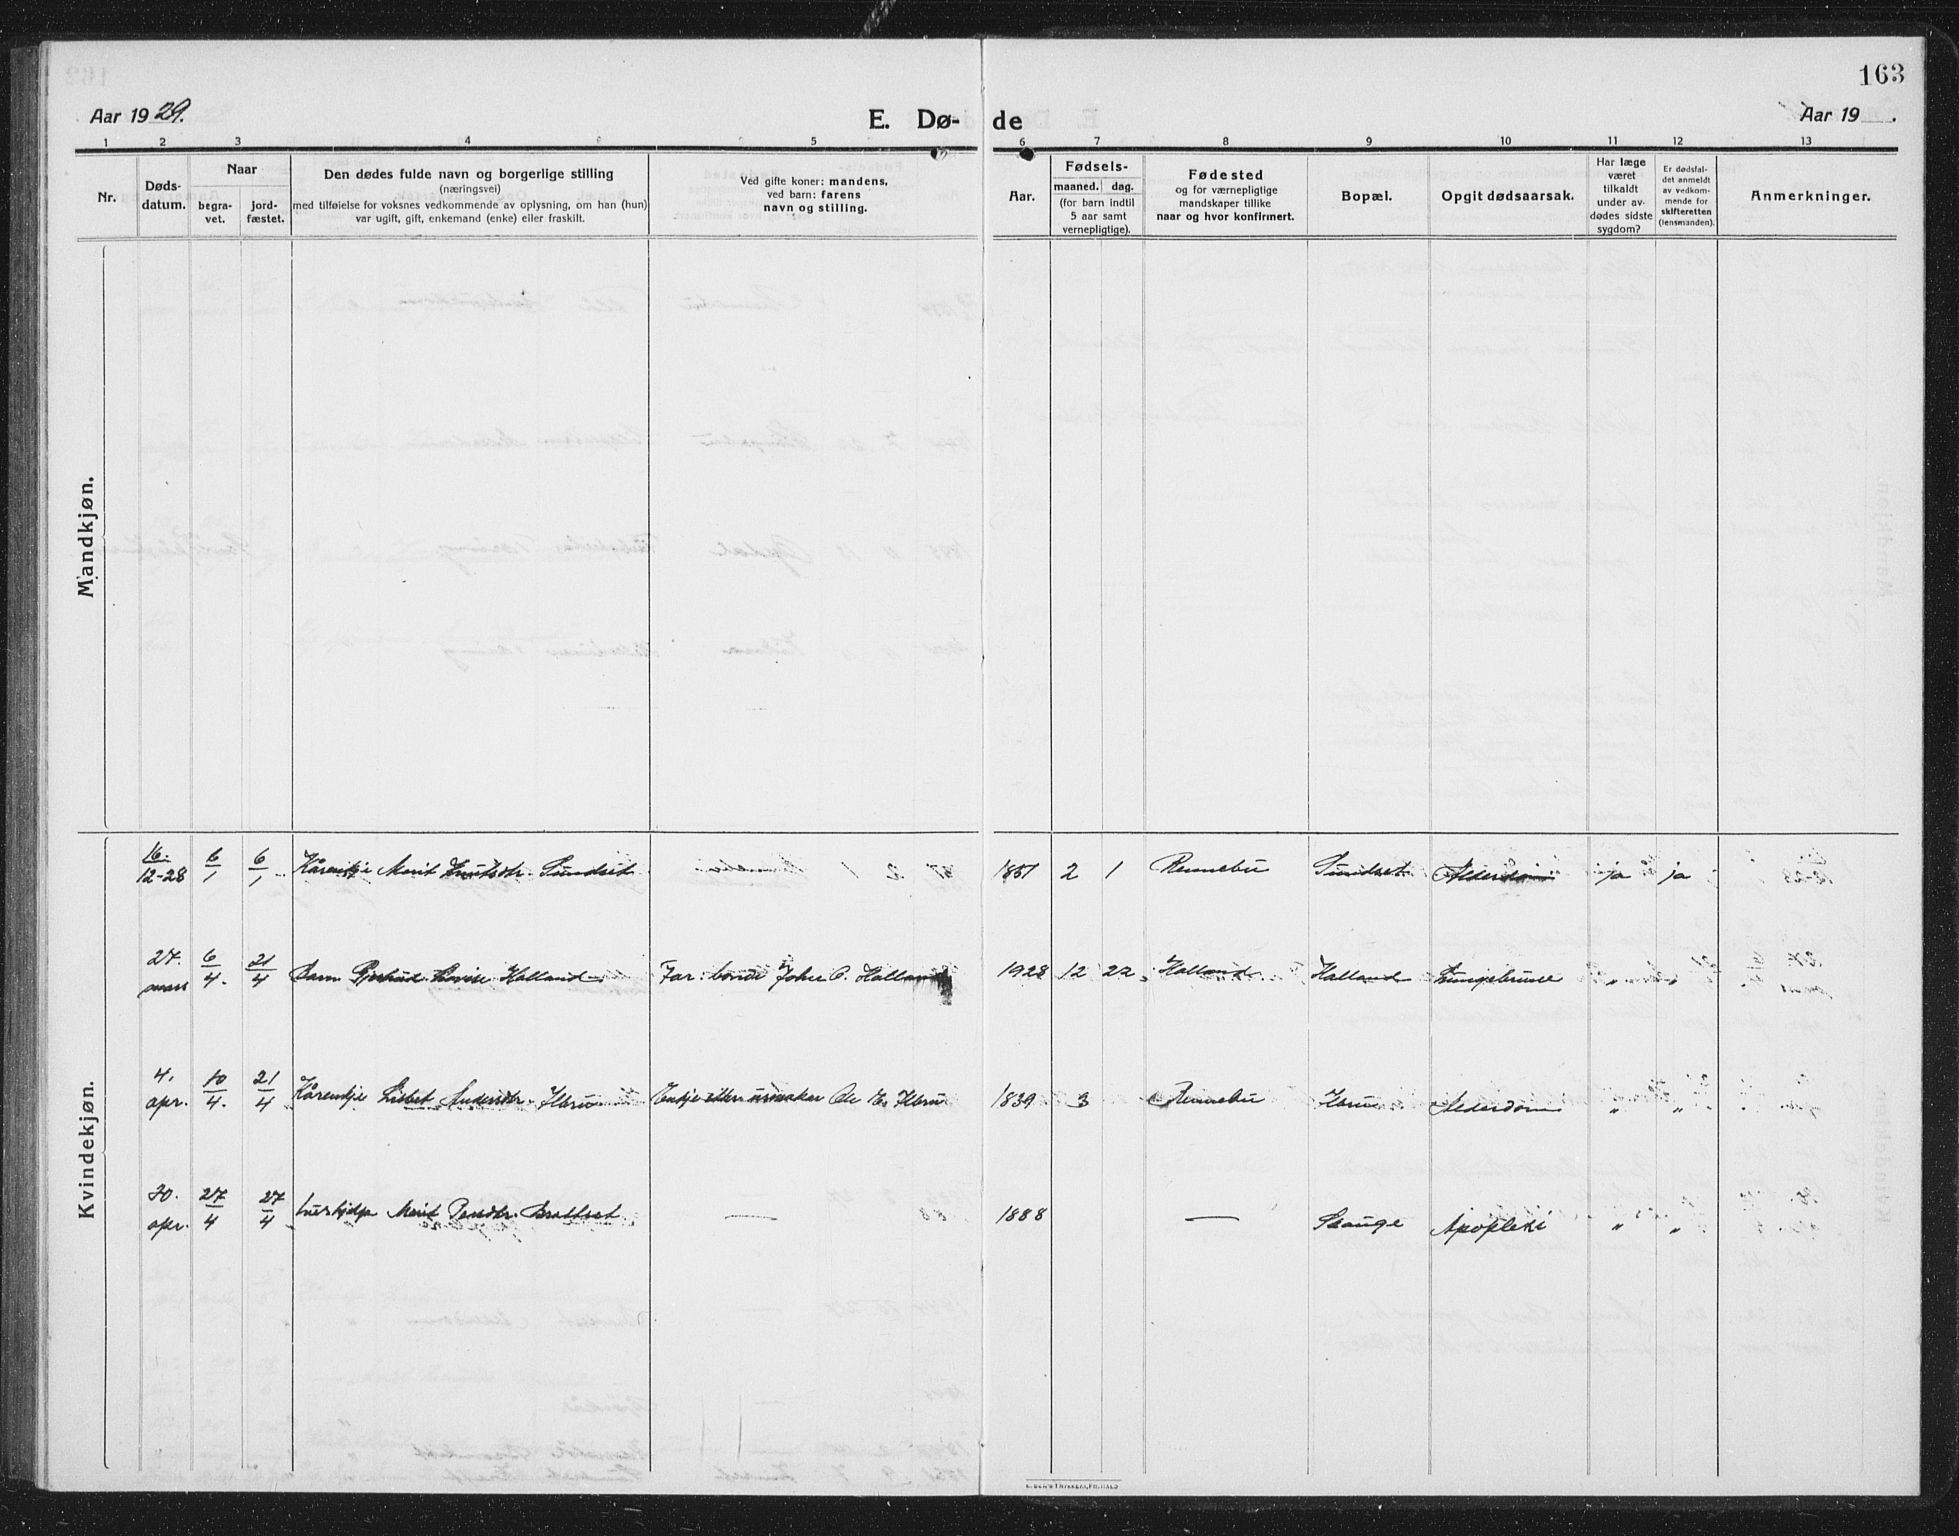 163
Aar 1929.
E. Dø- de
Aar 19 .
1 2 3 4 5 6 7 8 9 10 11 12 13
Nr.
Døds-
datum.
Naar
begra-
vet.
jord-
fæstet.
Den dødes fulde navn og borgerlige stilling
(næringsvei)
med tilføielse for voksnes vedkommende av oplysning, om han (hun)
var ugift, gift, enkemand (enke) eller fraskilt.
Ved gifte koner: mandens,
ved barn: farens
navn og stilling.
Aar.
Fødsels-
maaned. dag.
(for barn indtil
5 aar samt
vernepligtige).
Fødested
og for værnepligtige
mandskaper tillike
naar og hvor konfirmert.
Bopæl.
Opgit dødsaarsak.
Har læge
været
tilkaldt
under av-
dødes sidste
sygdom?
Er dødsfal-
det anmeldt
av vedkom-
mende for
skifteretten
(lensmanden).
Anmerkninger.
Mandkjøn.
Kvindekjøn.
16. 6 6
12-28 1 1 Kårenkje Marit Knutsdtr. Sundset 1851 2 1 Rennebu Sundset Alderdom ja ja
27. 6 21
mars 4. 4 Barn Gjertrud Lovise Halland Far: bonde John O. Halland 1928 12 22 Halland Halland Lungebrend " "
4. 10 21
apr. 4. 4 Kårenkje Lisbet Andersdtr. Ilbru Enkje etter urmaker Ole E. Ilbru 1839 3 Rennebu Ilbru Alderdom " "
20. 27 27
apr. 4 4 Marit Persdtr. Brattset — 1888 — Skauge Apopleksi " "